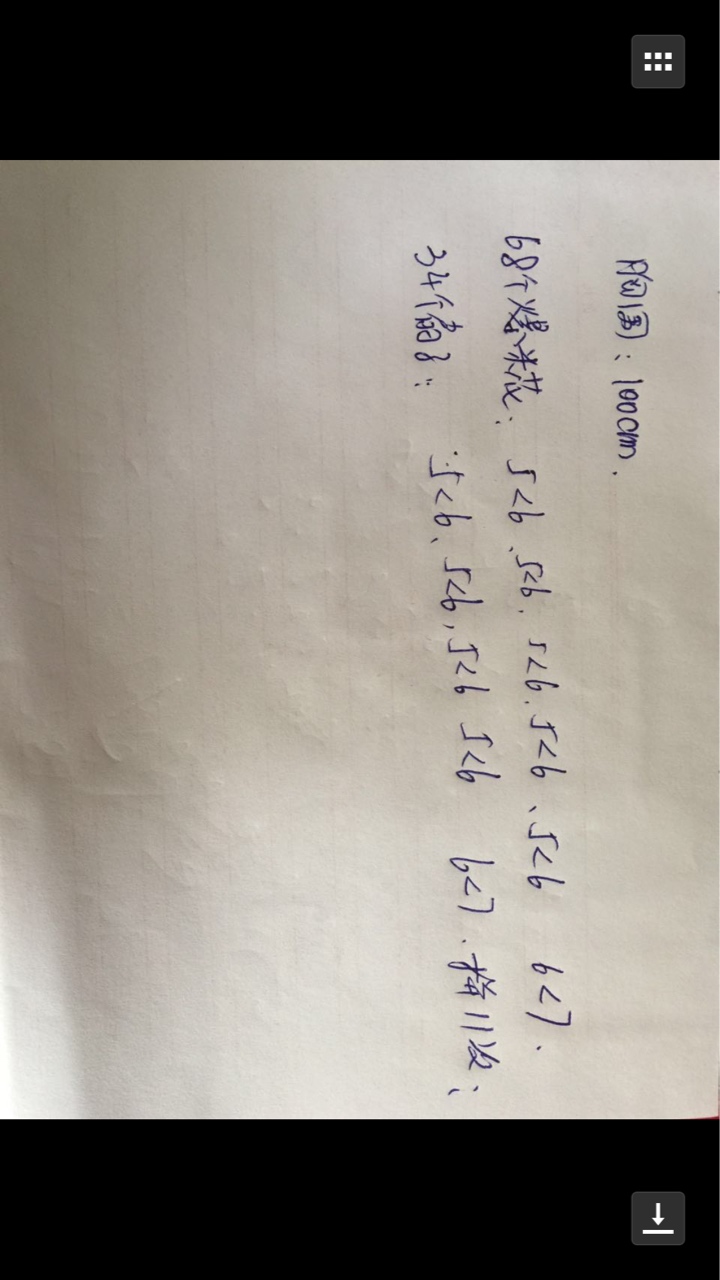 胸围：100cm.
68个爆米花：5<6、5<6、5<6、5<6、5<6 6<7.
34个的：5<6、5<6，5<6 5<6 6<7. 11次；